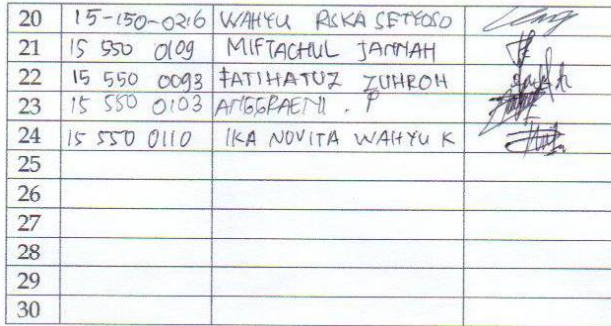 20 15-150-0216 WAHYU RISKA SETYOSO
21 15 550 0109 MIFTACHUL JANNAH
22 15 550 0093 FATIHATUZ ZUHROH
23 15 550 0103 ANGGRAENI . P
24 15 550 0110 IKA NOVITA WAHYU K
25
26
27
28
29
30